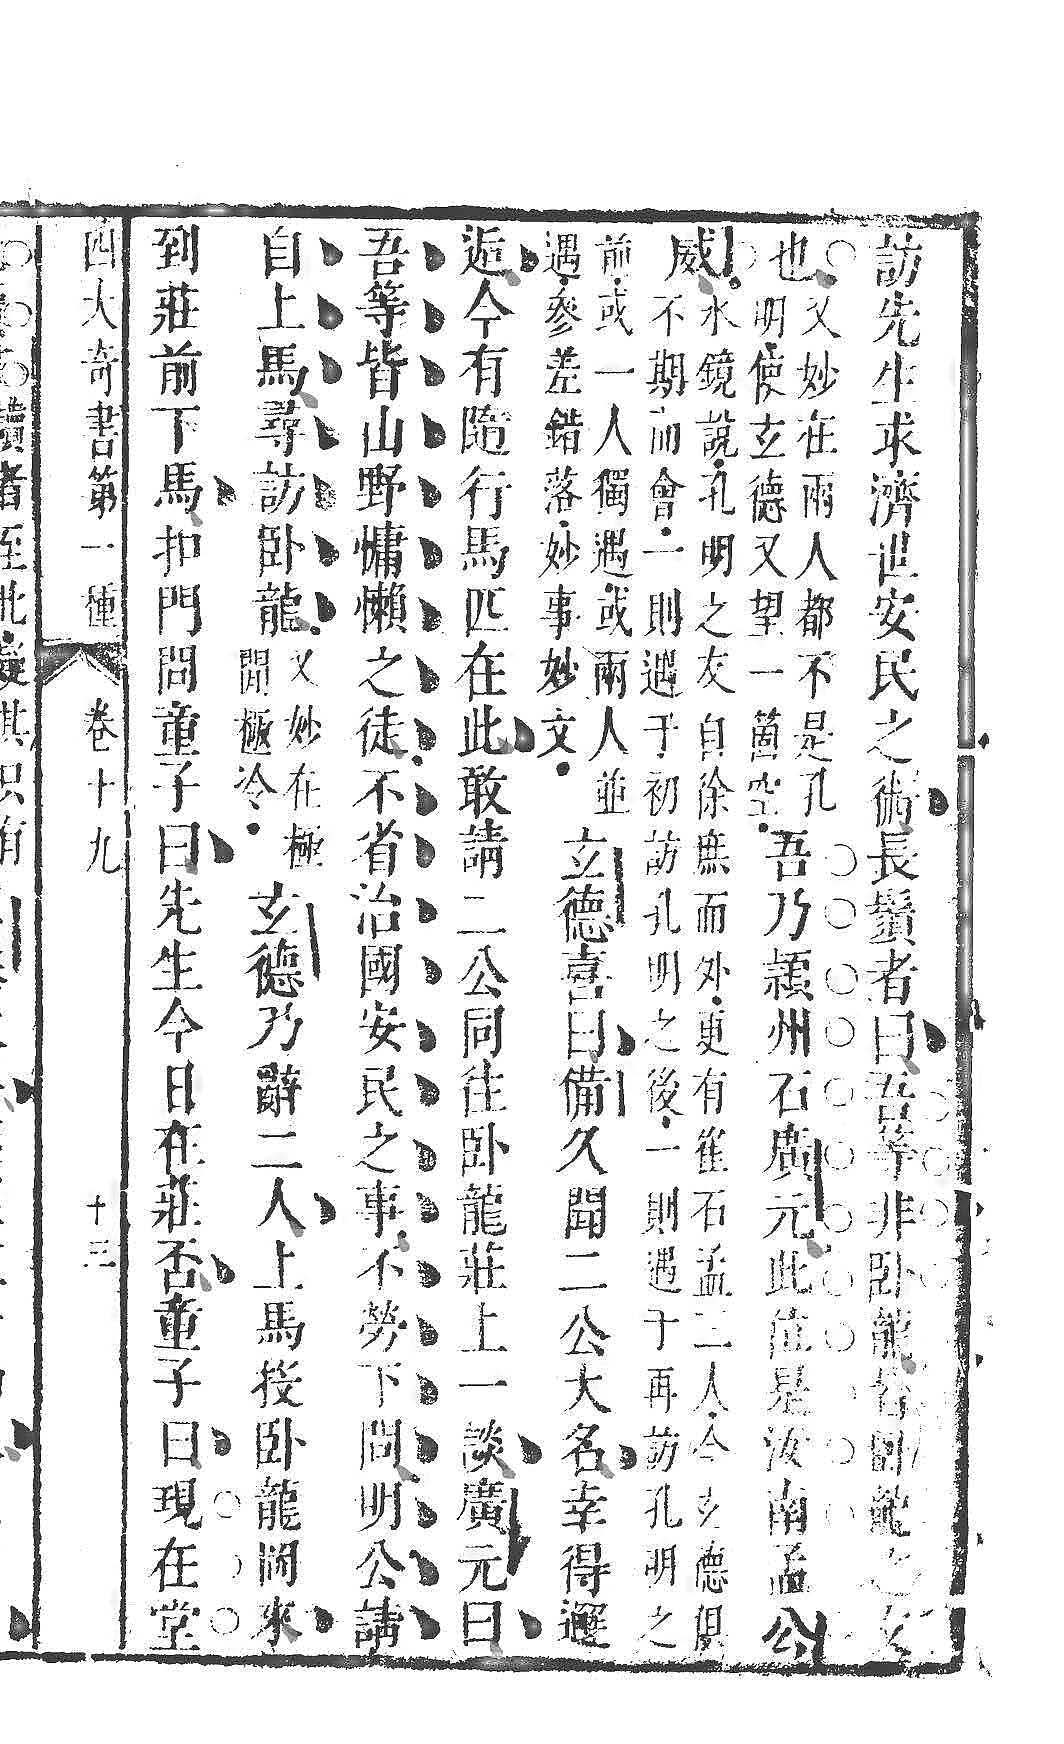 訪先生求濟世安民之術長鬚者曰吾等非卧龍皆卧龍之友
也又妙在兩人都不是孔
明使玄德又望一箇空吾乃潁州石廣元此位是汝南孟公
威水鏡說孔明之友自徐庶而外更有崔石孟三人今玄德俱
不期而會一則遇于初訪孔明之後一則遇于再訪孔明之
前或一人獨遇或兩人並
遇參差錯落妙事妙文玄德喜曰備久聞二公大名幸得邂
逅今有隨行馬匹在此敢請二公同往卧龍莊上一談廣元曰
吾等皆山野慵懶之徒不省治國安民之事不勞下問明公請
自上馬尋訪卧龍又妙在極
閒極冷玄德乃辭二人上馬投卧龍岡來
到莊前下馬扣門問童子曰先生今日在莊否童子曰現在堂
四大奇書第一種 卷十九 十三
讀者至此疑其只有